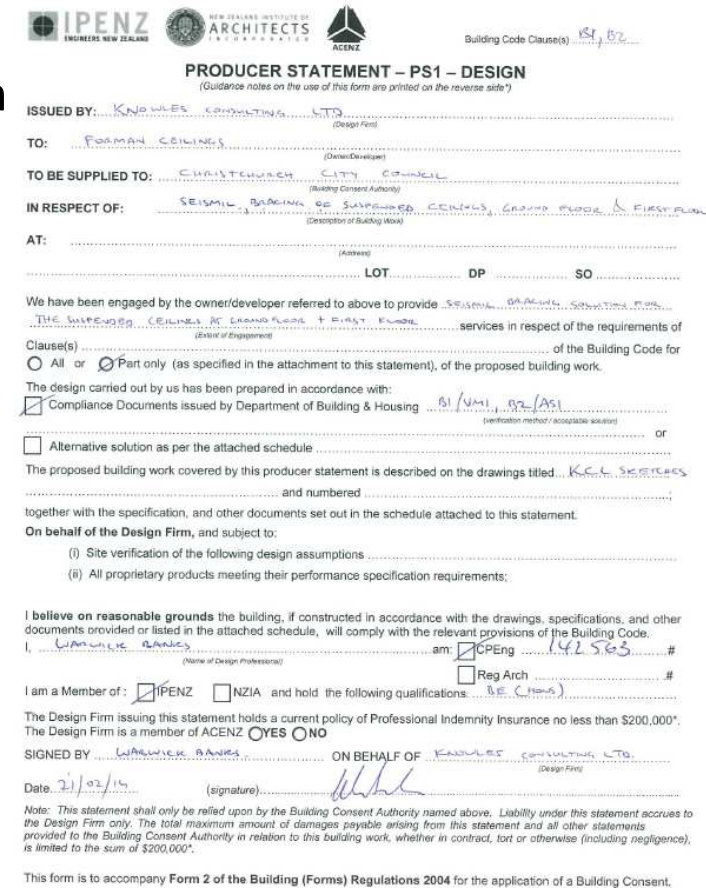 IPENZ
ENGINEERS NEW ZEALAND
NEW ZEALAND INSTITUTE OF
ARCHITECTS
INCORPORATED
ACENZ
Building Code Clause(s) B1, B2
PRODUCER STATEMENT – PS1 – DESIGN
(Guidance notes on the use of this form are printed on the reverse side*)
ISSUED BY: KNOWLES CONSULTING LTD
(Design Firm)
TO: FORMAN CEILINGS
(Owner/Developer)
TO BE SUPPLIED TO: CHRISTCHURCH CITY COUNCIL
(Building Consent Authority)
IN RESPECT OF: SEISMIC BRACING OF SUSPENDED CEILINGS, GROUND FLOOR & FIRST FLOOR
(Description of Building Work)
AT:
(Address)
LOT DP SO
We have been engaged by the owner/developer referred to above to provide SEISMIC BRACING SOLUTION FOR
THE SUSPENDED CEILINGS AT GROUND FLOOR + FIRST FLOOR services in respect of the requirements of
(Extent of Engagement)
Clause(s) of the Building Code for
All or Part only (as specified in the attachment to this statement), of the proposed building work.
The design carried out by us has been prepared in accordance with:
Compliance Documents issued by Department of Building & Housing B1/VM1, B2/AS1
(verification method / acceptable solution)
or
Alternative solution as per the attached schedule
The proposed building work covered by this producer statement is described on the drawings titled K.C.L SKETCHES
and numbered ;
together with the specification, and other documents set out in the schedule attached to this statement.
On behalf of the Design Firm, and subject to:
(i) Site verification of the following design assumptions
(ii) All proprietary products meeting their performance specification requirements;
I believe on reasonable grounds the building, if constructed in accordance with the drawings, specifications, and other
documents provided or listed in the attached schedule, will comply with the relevant provisions of the Building Code.
I, WARWICK BANKS am: CPEng 142563 #
(Name of Design Professional)
Reg Arch #
I am a Member of : IPENZ NZIA and hold the following qualifications BE (HONS)
The Design Firm issuing this statement holds a current policy of Professional Indemnity Insurance no less than $200,000*.
The Design Firm is a member of ACENZ YES NO
SIGNED BY WARWICK BANKS ON BEHALF OF KNOWLES CONSULTING LTD.
(Design Firm)
Date 21/02/14 (signature)
Note: This statement shall only be relied upon by the Building Consent Authority named above. Liability under this statement accrues to
the Design Firm only. The total maximum amount of damages payable arising from this statement and all other statements
provided to the Building Consent Authority in relation to this building work, whether in contract, tort or otherwise (including negligence),
is limited to the sum of $200,000*.
This form is to accompany Form 2 of the Building (Forms) Regulations 2004 for the application of a Building Consent.